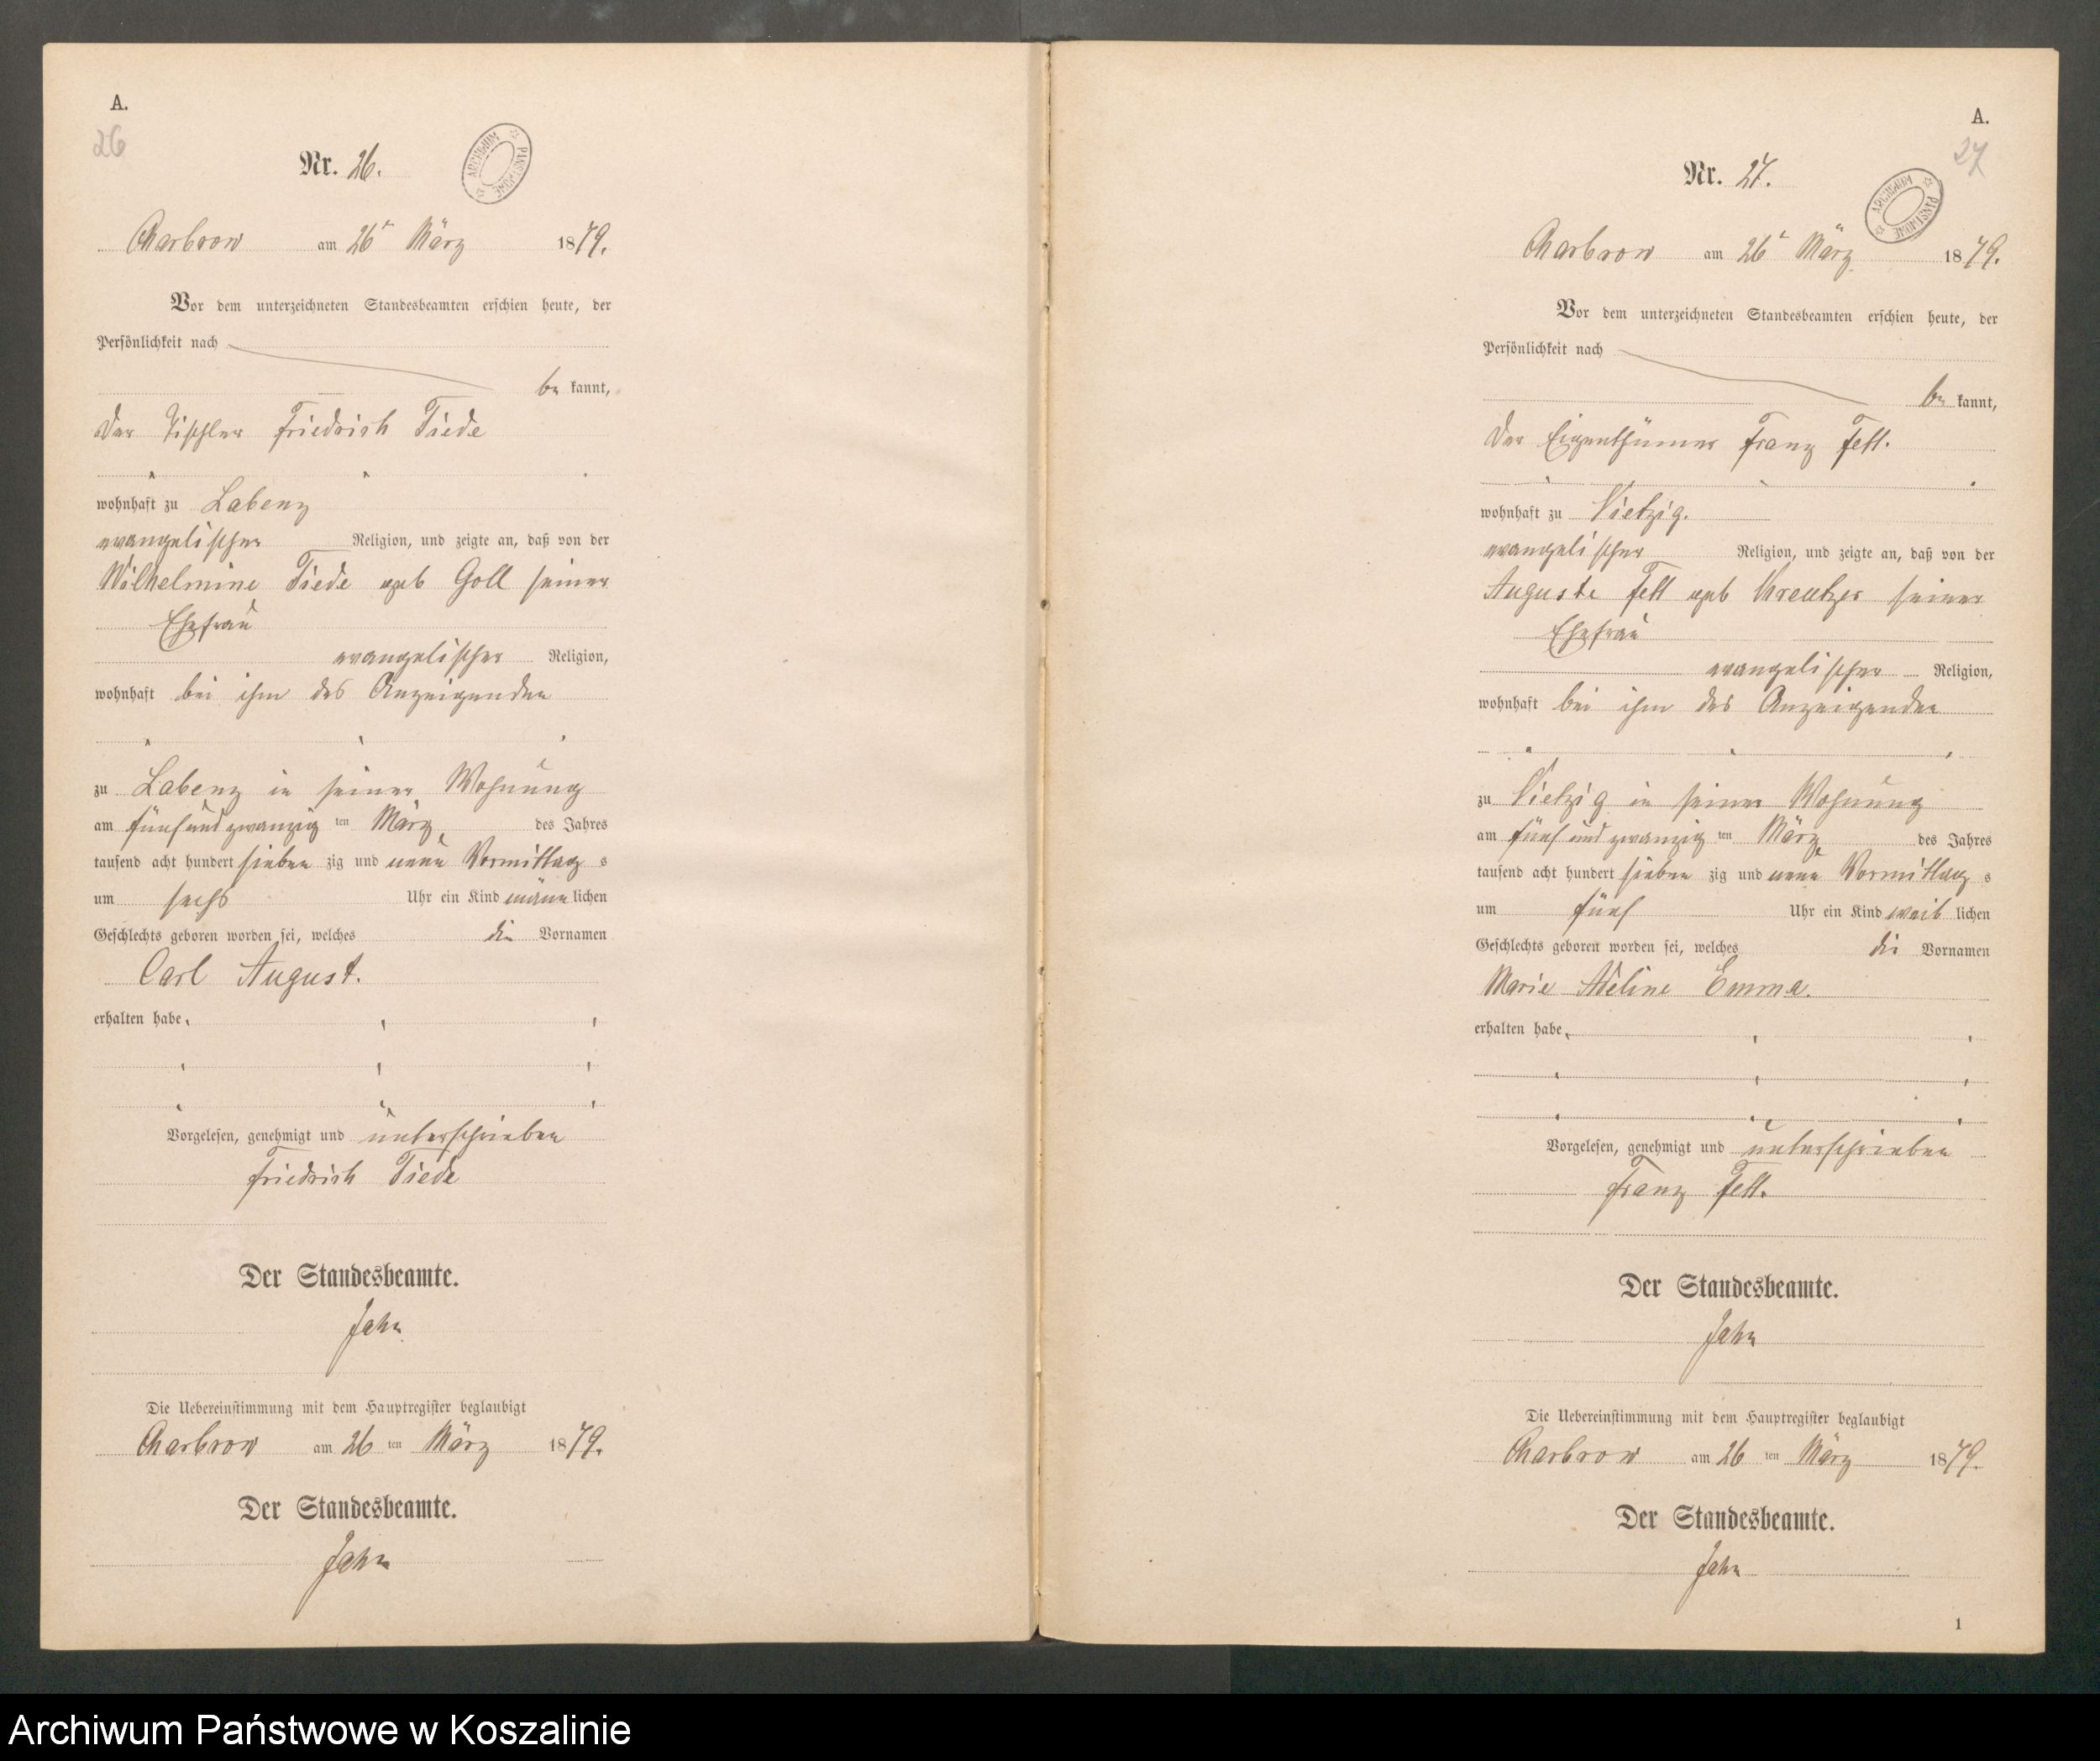 A.
26
Nr. 26.
ARCHIWUM PAŃSTWOWE
Charbrow am 26t März 1879.
Vor dem unterzeichneten Standesbeamten erschien heute, der
Persönlichkeit nach
be kannt,
der Tischler Friedrich Tiede
wohnhaft zu Labenz
evangelischer Religion, und zeigte an, daß von der
Wilhelmine Tiede geb Goll seiner
Ehefrau
evangelischer Religion,
wohnhaft bei ihm des Anzeigenden
zu Labenz in seiner Wohnung
am fünfundzwanzig ten März des Jahres
tausend acht hundert sieben zig und neun Vormittag s
um sechs Uhr ein Kind männ lichen
Geschlechts geboren worden sei, welches die Vornamen
Carl August.
erhalten habe,
Vorgelesen, genehmigt und unterschrieben
Friedrich Tiede
Der Standesbeamte.
Jahn
Die Uebereinstimmung mit dem Hauptregister beglaubigt
Charbrow am 26 ten März 1879.
Der Standesbeamte.
Jahn
A.
27
Nr. 27.
ARCHIWUM PAŃSTWOWE
Charbrow am 26t März 1879.
Vor dem unterzeichneten Standesbeamten erschien heute, der
Persönlichkeit nach
be kannt,
der Eigenthümer Franz Fett.
wohnhaft zu Vietzig.
evangelischer Religion, und zeigte an, daß von der
Auguste Fett geb Kreutzer seiner
Ehefrau
evangelischer Religion,
wohnhaft bei ihm des Anzeigenden
zu Vietzig in seiner Wohnung
am fünf und zwanzig ten März des Jahres
tausend acht hundert sieben zig und neun Vormittag s
um fünf Uhr ein Kind weib lichen
Geschlechts geboren worden sei, welches die Vornamen
Marie Adeline Emma.
erhalten habe,
Vorgelesen, genehmigt und unterschrieben
Franz Fett.
Der Standesbeamte.
Jahn
Die Uebereinstimmung mit dem Hauptregister beglaubigt
Charbrow am 26 ten März 1879.
Der Standesbeamte.
Jahn
1
Archiwum Państwowe w Koszalinie